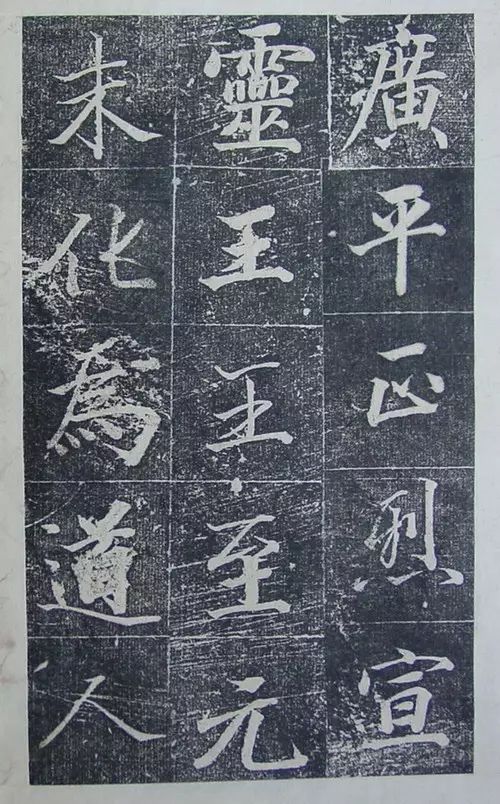 廣平正烈宣
靈王王至元
末化為道人